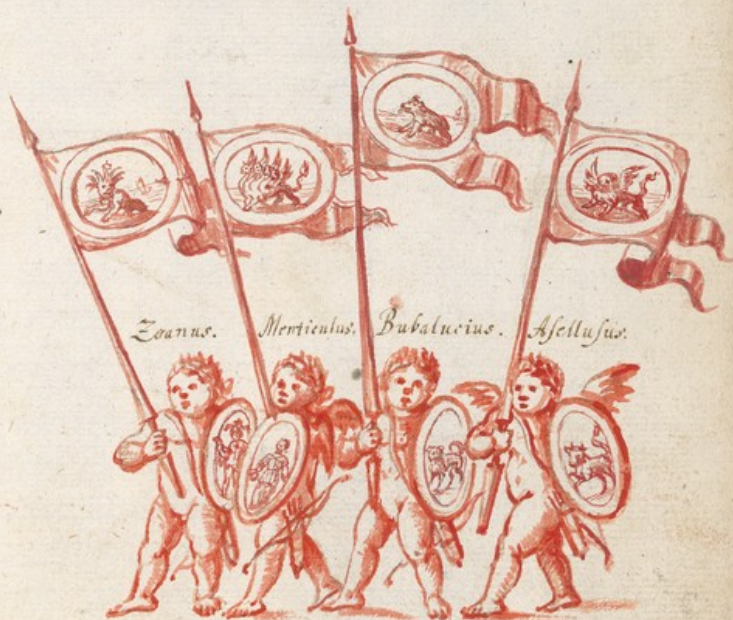 Zoanus. Menticulus. Bubalucius. Asellusus.